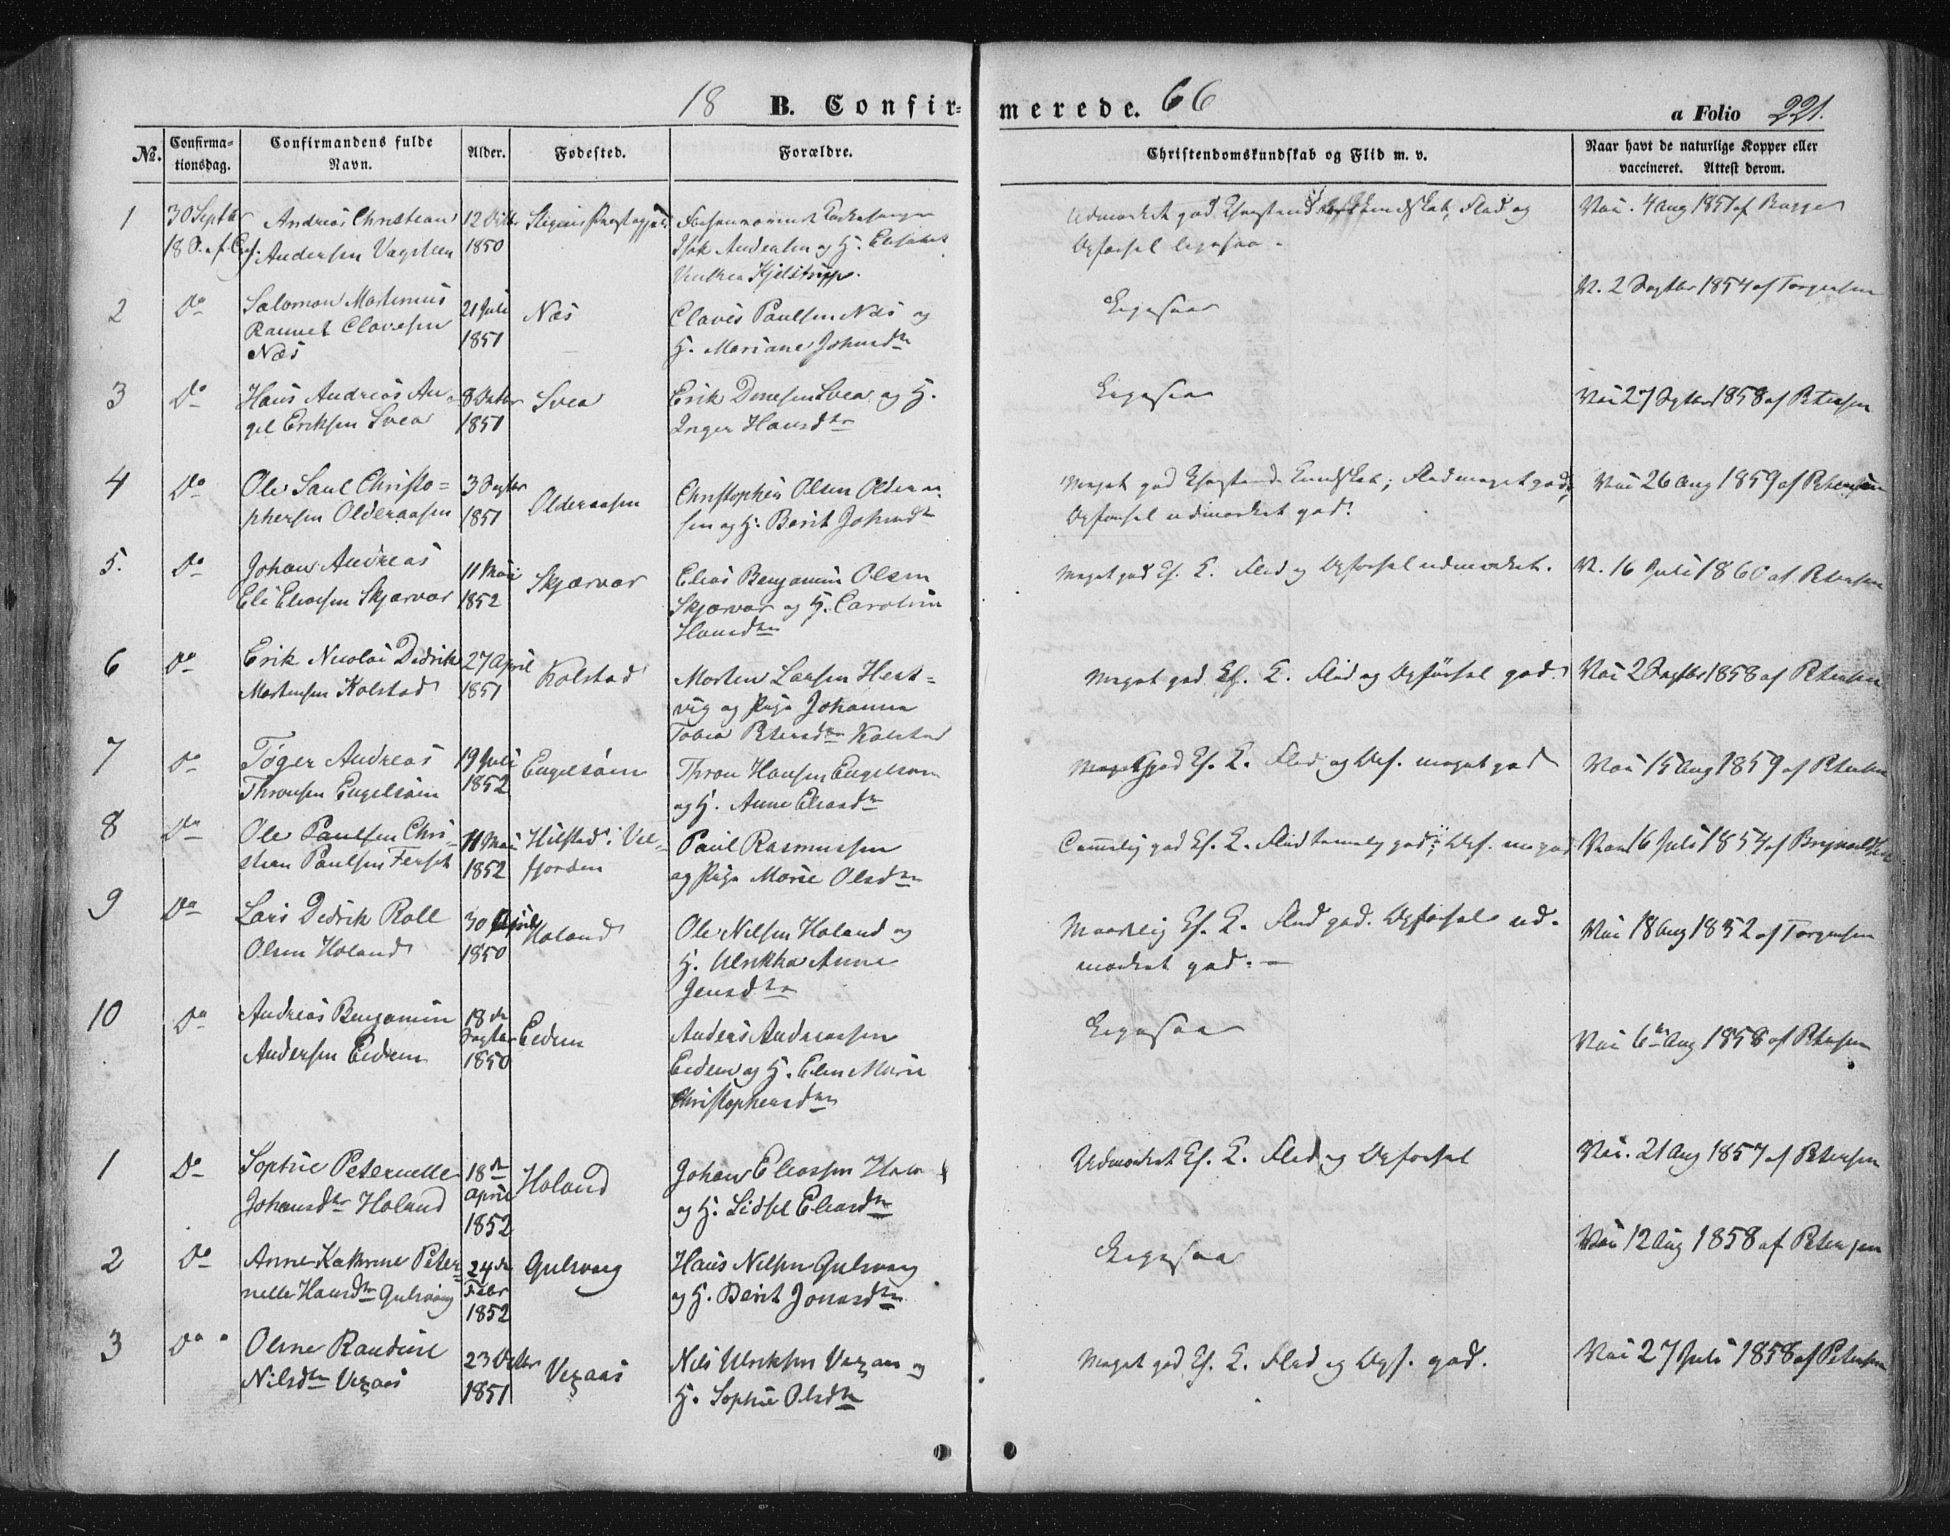 18 B. Confirmerede. 66
a Folio 221.
No. Confirmationsdag. Confirmandens fulde Navn. Alder. Fødested. Forældre. Christendomskundskab og Flid m. v. Naar havt de naturlige Kopper eller vaccineret. Attest derom.
1 30 Septbr 18 S. a. f. Andreas Christian
Andersen Vagsteen
1850
Isak Andersen og H. Elisabet
Kjelstrupp.
Udmærket god Kundskab, Flid og
Opførsel ligesaa.
4 Aug 1851 af Bugge
2 Do Salomon Martinus
Clavesen
Næs
21 Juli
1851
Næs
Claves Paulsen Næs og
H. Mariane Johnsdtr
Ligesaa
V. 2 Septbr 1854 af Torgersen
3 Do Hans Andreas An-
gel Eriksen Svea
8 Octbr
1851
Svea
Erik Svea og H.
Inger Hansdtr
Ligesaa
27 Septbr 1858 af Petersen
4 Do Ole Paul Christo=
phersen Olderaasen
3 Septbr
1851
Olderaasen
Christopher Olsen Olderaa-
sen og H. Berit Johnsdtr
Meget god Kundskab; Flid meget god;
Opførsel udmærket god.
26 Aug 1859 af Petersen
5. Do Johan Andreas
Eli Eliasen Skjærvær
11 Mai
1852
Skjærvær
Elias Benjamin Olsen
Skjærvær og H. Carolin
Hansdtr
Meget god K. Flid og Opførsel udmærket.
V. 16 Juli 1860 af Petersen
6 Do Erik Nicolai Didrik
Mortensen Kolstad
27 April
1851
Kolstad
Morten Larsen Hest=
vig og Pige Johanna
Tobia Petersdtr Kolstad
Meget god K. Flid og Opførsel god.
2 Septbr 1858 af Petersen
7 Do Tøger Andreas
Thronsen Engelsøin
19 Juli
1852
Engelsøin
Thron Hansen Engelsøin
og H. Anne Eliasdtr
Meget god K. Flid og Opf. meget god
15 Aug 1859 af Petersen
8 Do Ole Paulsen Chri-
stian Paulsen
11 Mai
1852
Hilstad i Vel-
fjorden
Paul Rasmussen
og Pige Marie Olsdtr
god K. Flid temelig god; Opf. m. god
16 Juli 1854 af
9 Do Lars Didrik Roll
Olsen Holand
30 April
1850
Holand
Ole Nilsen Holand og
H. Ulrikka Anne
Jensdtr
Maadelig K. Flid god. Opførsel ud-
mærket god.
18 Aug 1852 af Torgersen
10 Do Andreas Benjamin
Andersen Eidem
18de
Septbr
1850
Eidem
Anders Andreassen
Eidem og H. Elen Marie
Christophersdtr
Ligesaa
6te Aug 1858 af Petersen
1 Do Sophie Peternelle
Johansdtr Holand
18de
April
1852
Holand
Johan Eliassen
og H. Sidsel Eliasdtr
Udmærket K. Flid og Opførsel
21 Aug 1857 af Petersen
2 Do Anne Katrine Peter=
nelle Hansdtr Gulsvaag
24de
Febr
1852
Gulsvaag
Hans Nilsen Gulsvaag
og H. Berit Jonasdtr
Ligesaa
12 Aug 1858 af Petersen
3 Do Oline Raudine
Nilsdtr Vegaas
23 Octbr
1851
Vegaas
Nils Ulriksen Vegaas og
H. Sophie Olsdtr
Meget god K. Flid og Opf. god.
27 Juli 1858 af Petersen